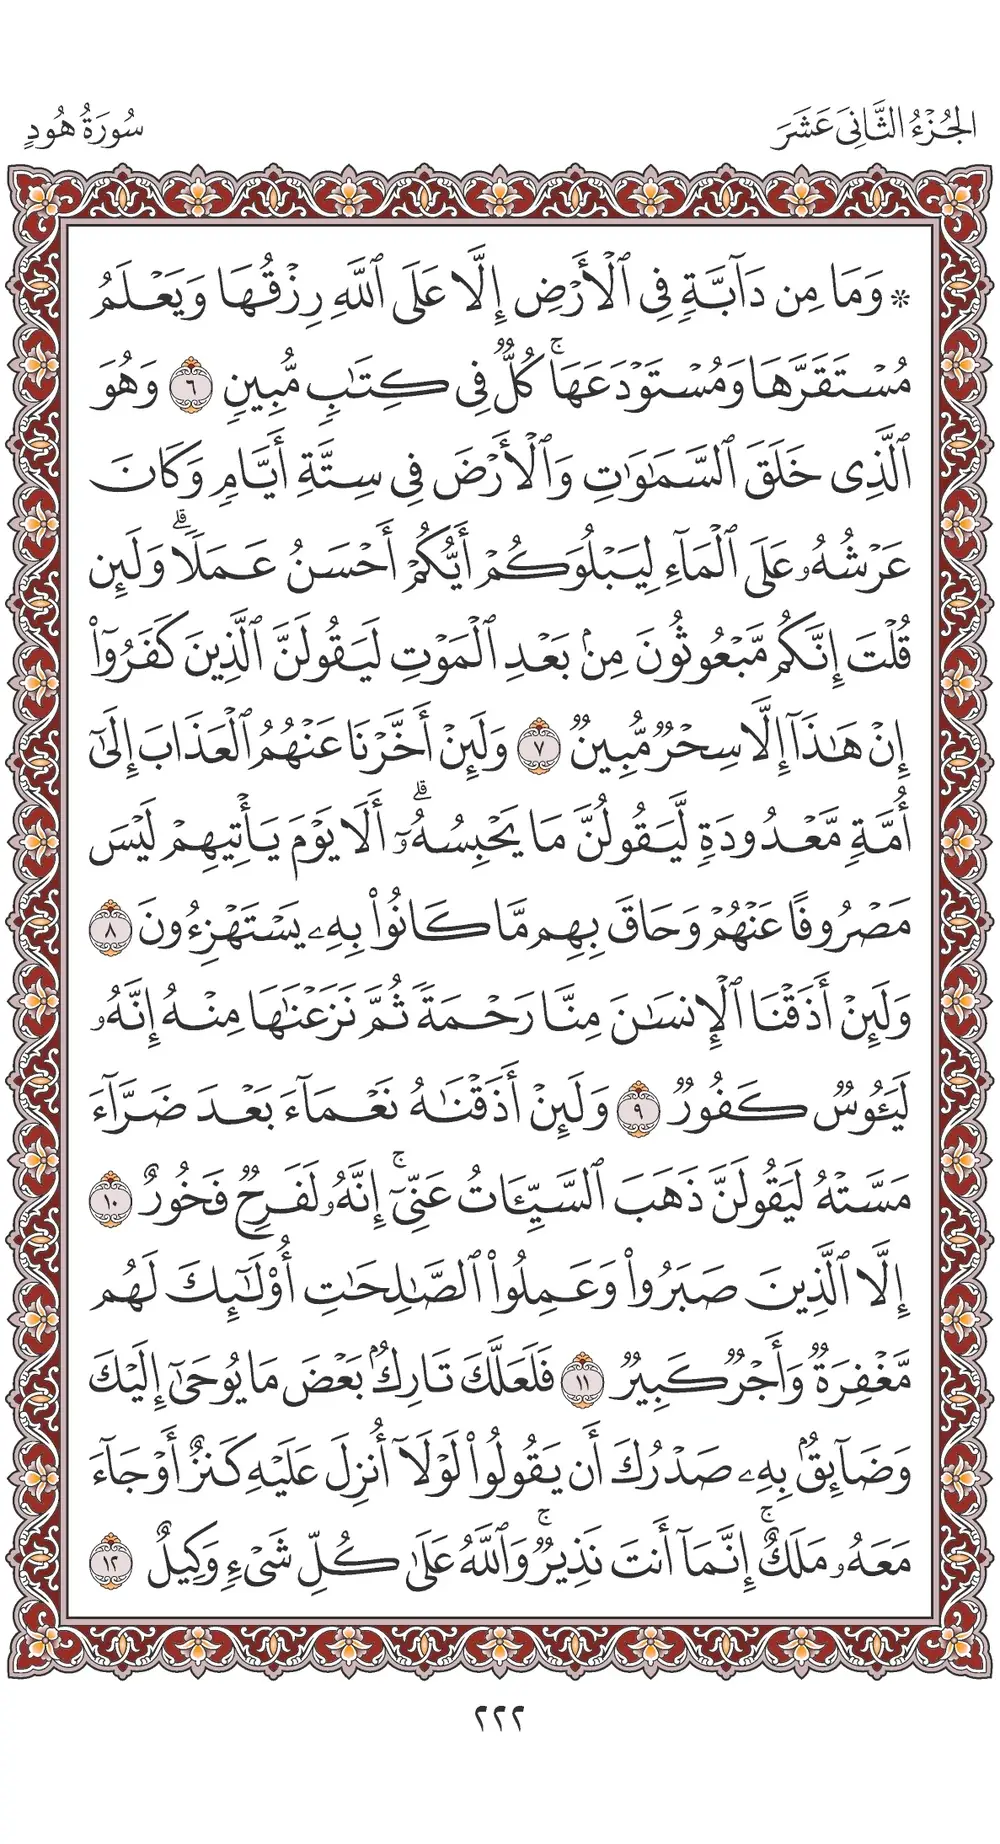 الجُزْءُ الثَّانِيَ عَشَرَ
سُورَةُ هُودٍ
۞ وَمَا مِن دَآبَّةٖ فِي ٱلۡأَرۡضِ إِلَّا عَلَى ٱللَّهِ رِزۡقُهَا وَيَعۡلَمُ
مُسۡتَقَرَّهَا وَمُسۡتَوۡدَعَهَاۚ كُلّٞ فِي كِتَٰبٖ مُّبِينٖ ٦ وَهُوَ
ٱلَّذِي خَلَقَ ٱلسَّمَٰوَٰتِ وَٱلۡأَرۡضَ فِي سِتَّةِ أَيَّامٖ وَكَانَ
عَرۡشُهُۥ عَلَى ٱلۡمَآءِ لِيَبۡلُوَكُمۡ أَيُّكُمۡ أَحۡسَنُ عَمَلٗاۗ وَلَئِن
قُلۡتَ إِنَّكُم مَّبۡعُوثُونَ مِنۢ بَعۡدِ ٱلۡمَوۡتِ لَيَقُولَنَّ ٱلَّذِينَ كَفَرُوٓاْ
إِنۡ هَٰذَآ إِلَّا سِحۡرٞ مُّبِينٞ ٧ وَلَئِنۡ أَخَّرۡنَا عَنۡهُمُ ٱلۡعَذَابَ إِلَىٰٓ
أُمَّةٖ مَّعۡدُودَةٖ لَّيَقُولُنَّ مَا يَحۡبِسُهُۥٓۗ أَلَا يَوۡمَ يَأۡتِيهِمۡ لَيۡسَ
مَصۡرُوفًا عَنۡهُمۡ وَحَاقَ بِهِم مَّا كَانُواْ بِهِۦ يَسۡتَهۡزِءُونَ ٨
وَلَئِنۡ أَذَقۡنَا ٱلۡإِنسَٰنَ مِنَّا رَحۡمَةٗ ثُمَّ نَزَعۡنَٰهَا مِنۡهُ إِنَّهُۥ
لَيَـُٔوسٞ كَفُورٞ ٩ وَلَئِنۡ أَذَقۡنَٰهُ نَعۡمَآءَ بَعۡدَ ضَرَّآءَ
مَسَّتۡهُ لَيَقُولَنَّ ذَهَبَ ٱلسَّيِّـَٔاتُ عَنِّيٓۚ إِنَّهُۥ لَفَرِحٞ فَخُورٌ ١٠
إِلَّا ٱلَّذِينَ صَبَرُواْ وَعَمِلُواْ ٱلصَّٰلِحَٰتِ أُوْلَٰٓئِكَ لَهُم
مَّغۡفِرَةٞ وَأَجۡرٞ كَبِيرٞ ١١ فَلَعَلَّكَ تَارِكُۢ بَعۡضَ مَا يُوحَىٰٓ إِلَيۡكَ
وَضَآئِقُۢ بِهِۦ صَدۡرُكَ أَن يَقُولُواْ لَوۡلَآ أُنزِلَ عَلَيۡهِ كَنزٌ أَوۡ جَآءَ
مَعَهُۥ مَلَكٌۚ إِنَّمَآ أَنتَ نَذِيرٞۚ وَٱللَّهُ عَلَىٰ كُلِّ شَيۡءٖ وَكِيلٌ ١٢
٢٢٢